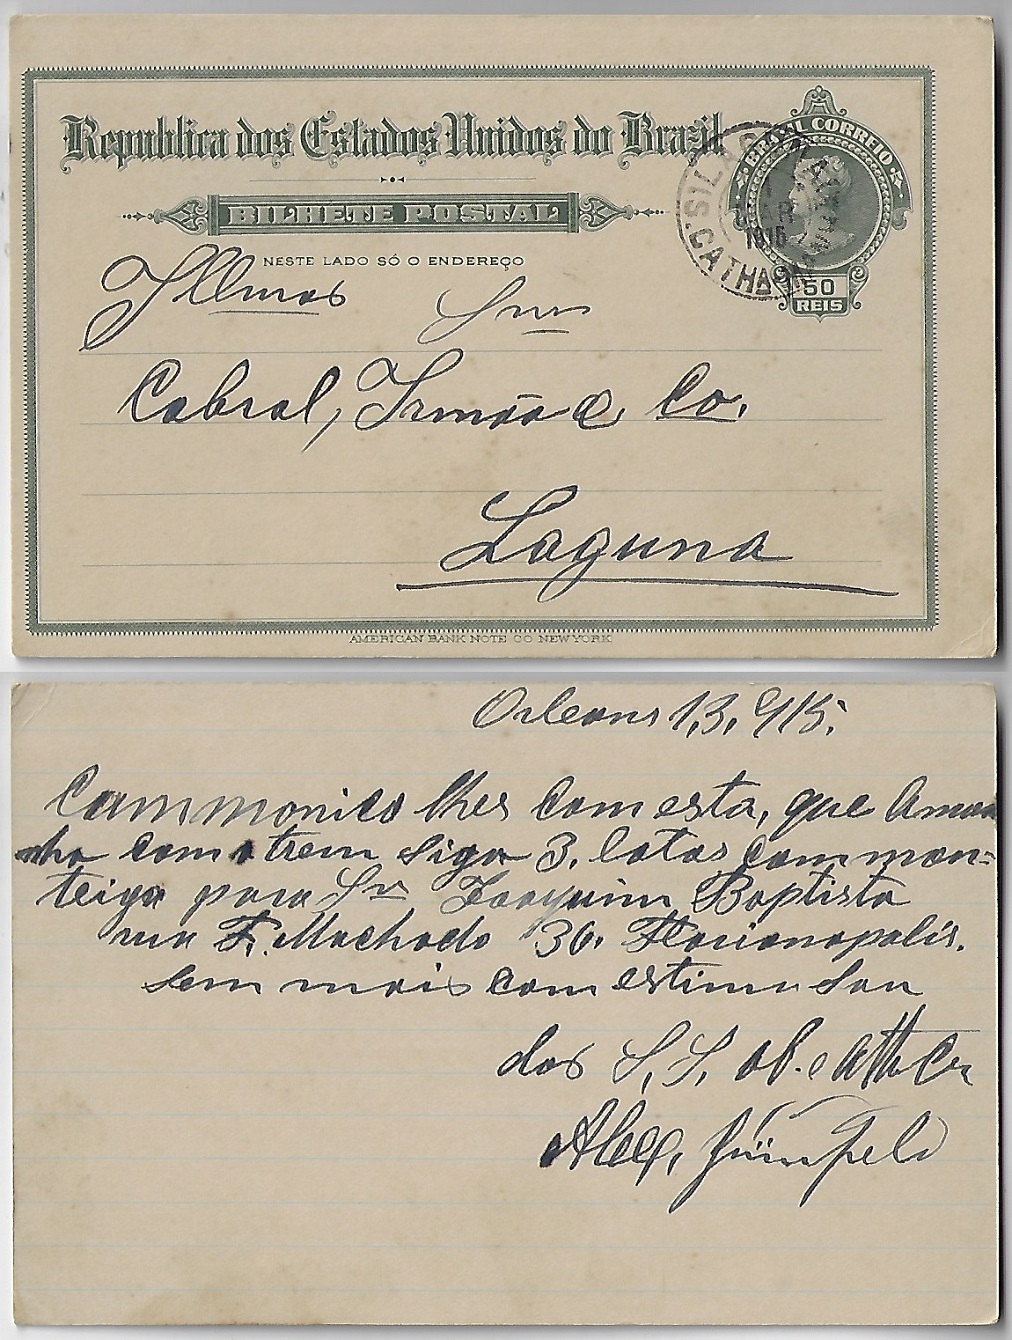 Republica dos Estados Unidos do Brazil
BRAZIL CORREIO
BILHETE POSTAL
1915
CATHARINA
NESTE LADO SÓ O ENDEREÇO
50
REIS
Illmos Snrs
Cabral, Irmão & Co.
Laguna
AMERICAN BANK NOTE CO NEW YORK
Orleans 1,3,915.
Commonico lhes com esta, que Aman
nha com o trem siga 3, latas com man=
teiga para Snr Joaquim Baptista
rua F. Machado 36. Florianopolis.
Sem mais com estima Sou
dos S, S, ob. e Atto Cr
Alex,